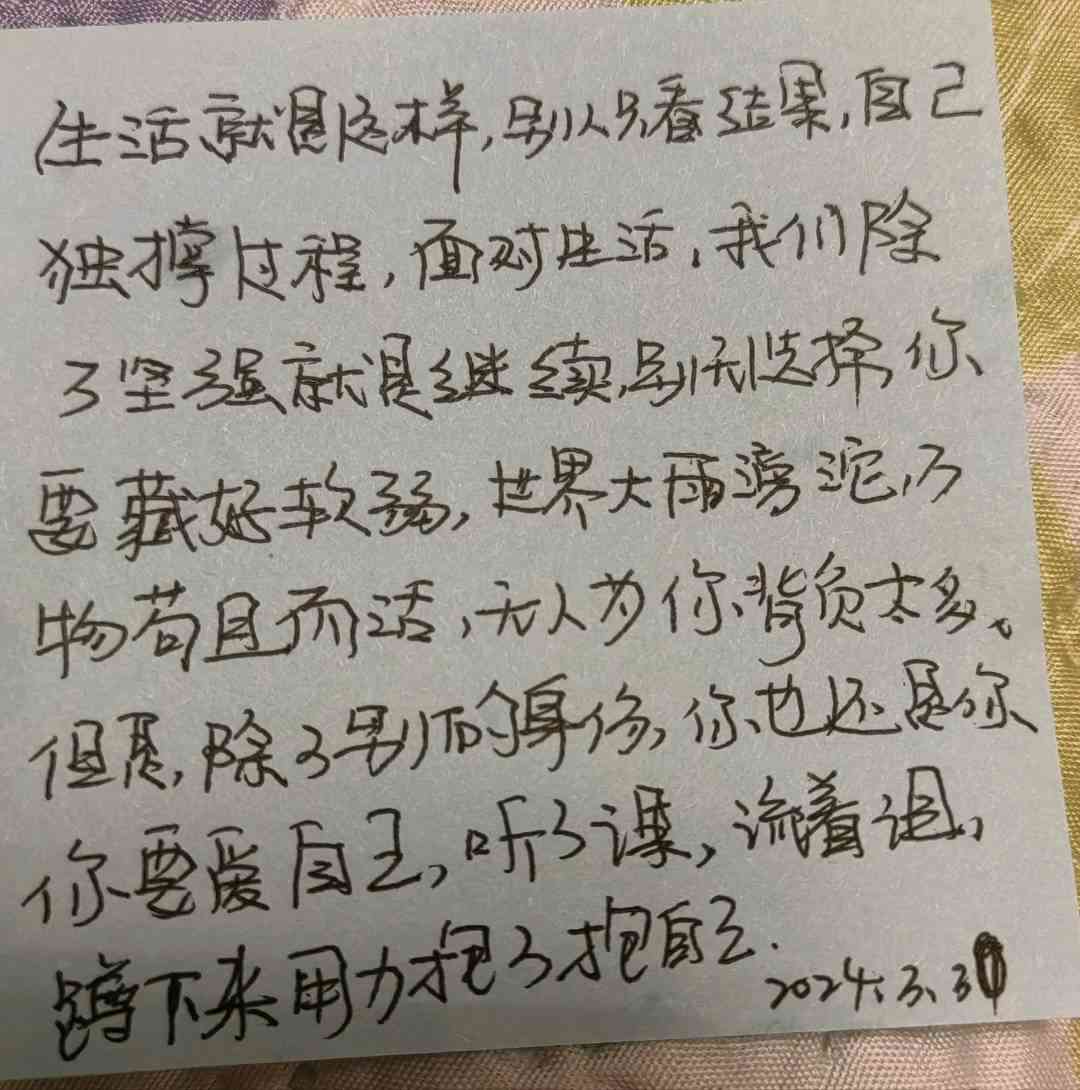 生活就是这样,别人只看结果,自己
独撑过程,面对生活,我们除
了坚强就是继续,别无选择,你
要藏好软弱,世界大雨滂沱,万
物苟且而活,无人为你背负太多。
但是,除了别的身份,你也还是你
你要爱自己,听了课,流着泪,
蹲下来用力抱了抱自己.
2024.3.31